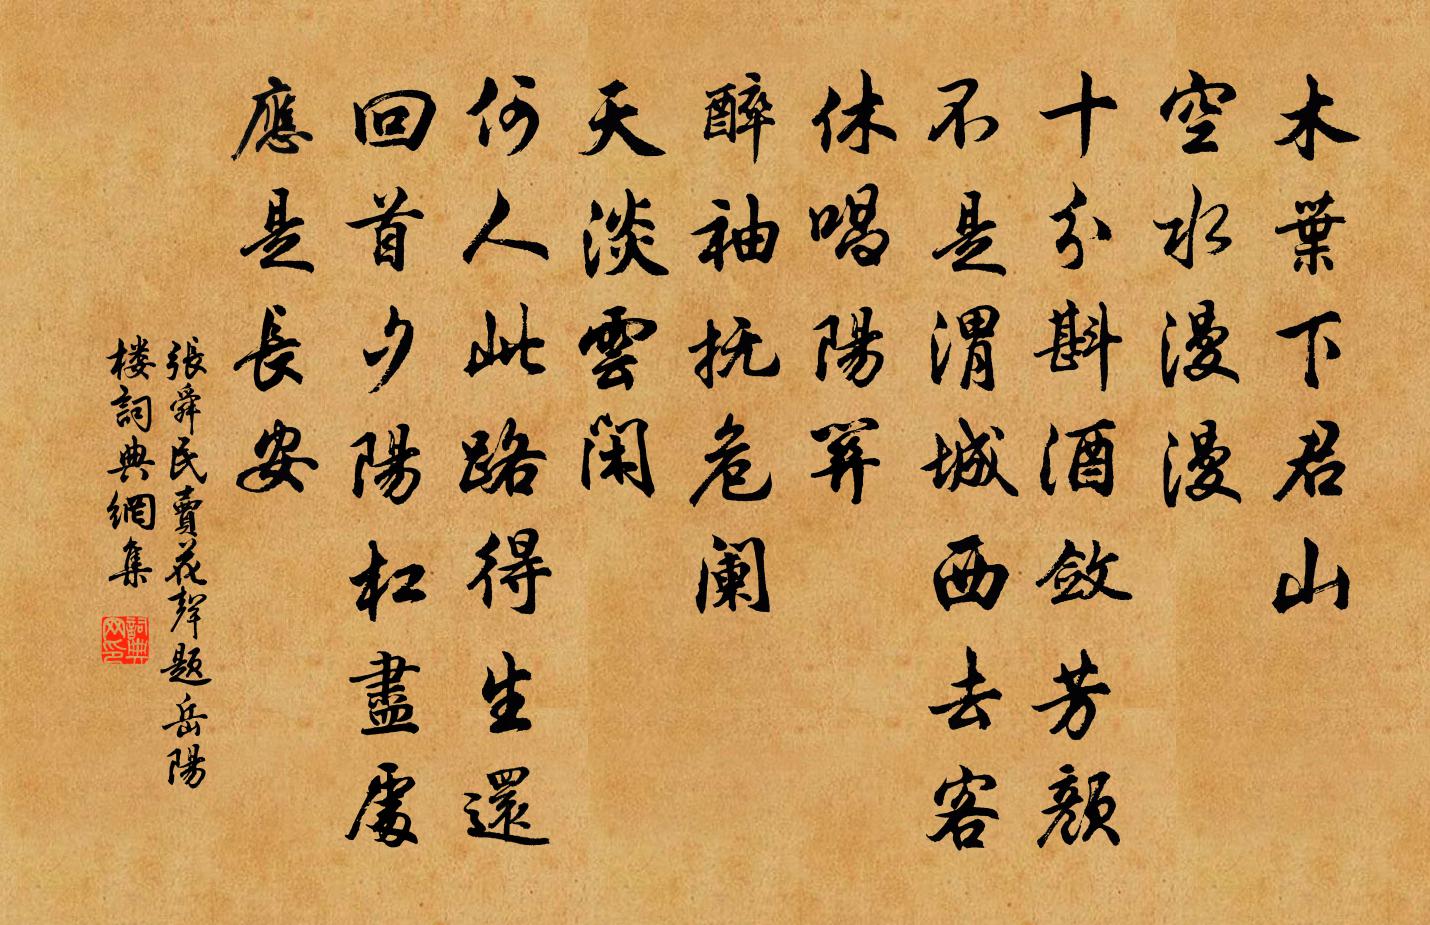 木葉下君山
空水漫漫
十分斟酒斂芳顔
不是渭城西去客
休唱陽關
醉袖抚危闌
天淡雲閑
何人此路得生還
回首夕陽紅盡處
應是長安
張舜民賣花聲題岳陽
楼詞典網集
詞典
网印